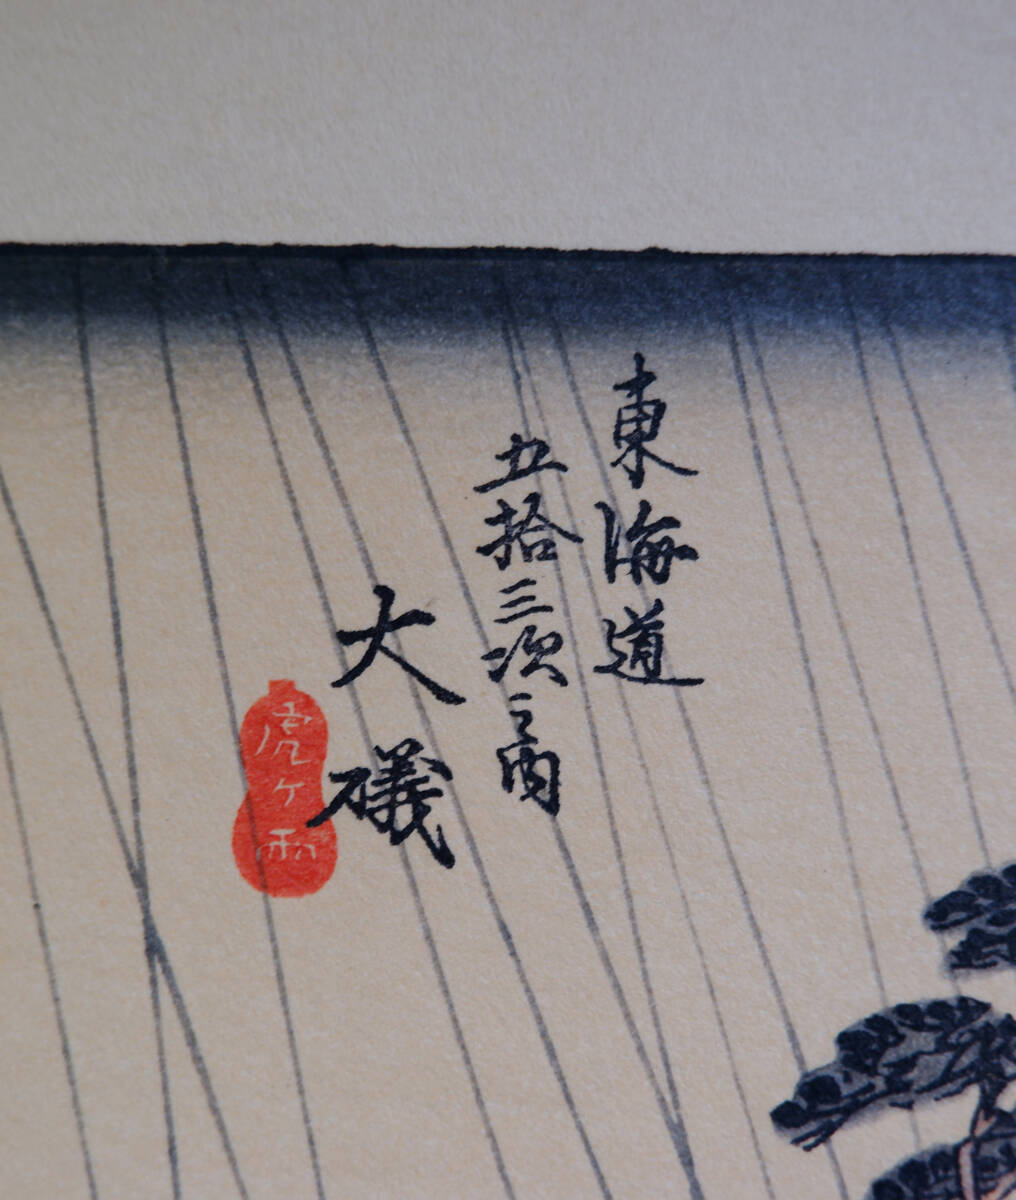 東海道
五拾三次之内
大礒
虎ヶ雨